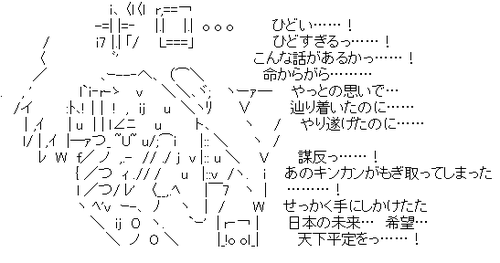 ひどい……！
ひどすぎるっ……！
こんな話があるかっ……！
命からがら………
やっとの思いで…
辿り着いたのに……
やり遂げたのに……
謀反っ……！
あのキンカンがもぎ取ってしまった
………！
せっかく手にしかけたた
日本の未来… 希望…
天下平定をっ……！